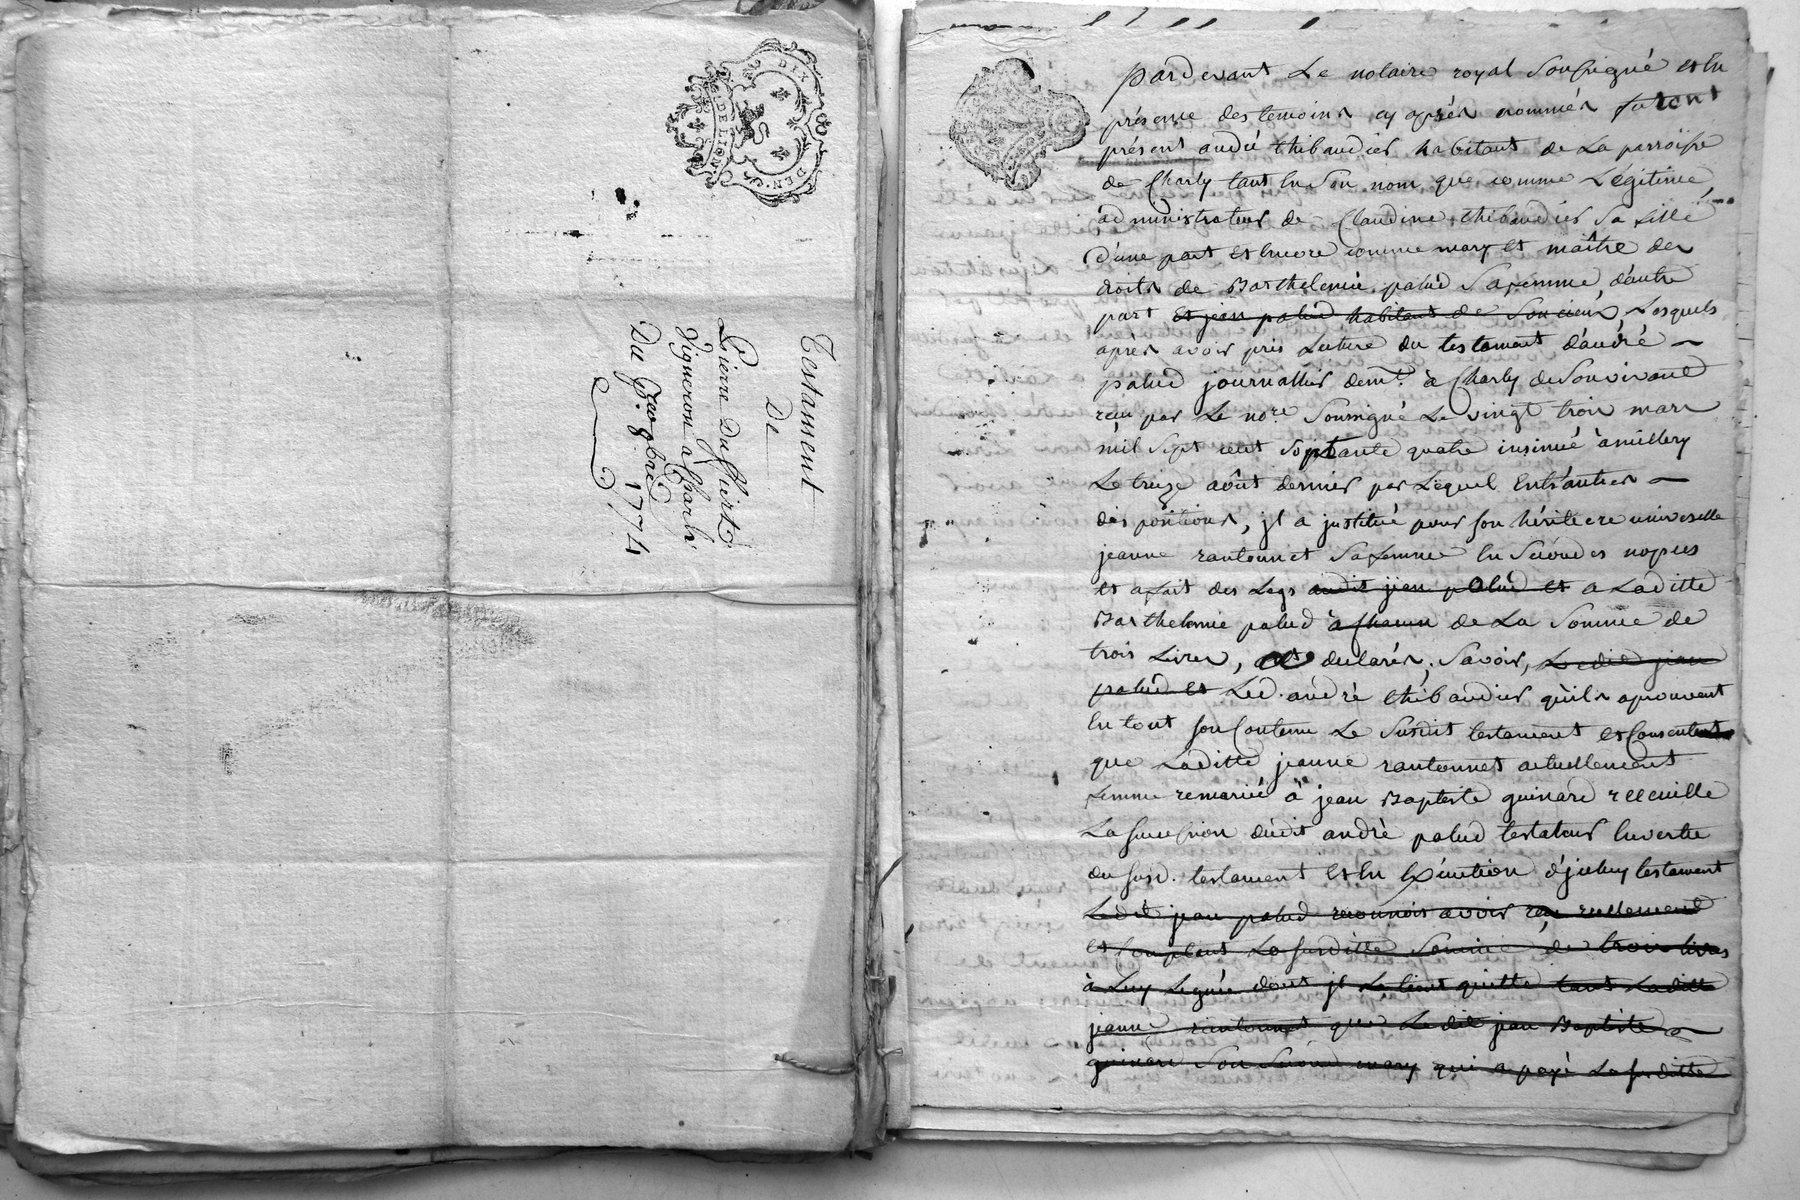 DIX DEN.
G. DE LION
Testament
De
Pierre Duffieux
Vigneron à Charli
Du 9bre 1774
pardevant Le notaire royal Sousigné et En
présence des temoins cy après nommés furent
présent andré thibaudier habitant de La parroisse
de Charly tant En Son nom que comme Légitime
administrateur de Claudine thibaudier Sa fille
d'une part et Encore comme mary et maître des
droits de Barthelemie palud Sa femme, d'autre
part et jean palud habitant de Soucieu, Lesquels
après avoir pris Lecture du testament d'andré
palud journallier demt. à Charly de Son vivant
reçu par Le nore. Soussigné Le vingt trois mars
mil Sept cent Soptante quatre insinué à millery
Le treize août dernier par Lequel Entr'autres
dispositions, jl a jnstitué pour son héritiere universelle
jeanne rantonnet Sa femme En Secondes nopces
et a fait des Legs audit jean palud et a Laditte
Barthelemie palud à chacun de La Somme de
trois Livres, ont declarés, Savoir, Ledit jean
palud et Led. andré thibaudier qu'ils aprouvent
En tout son Contenu Le Susdit testament et Consentent
que Laditte jeanne rantonnet actuellement
femme remariée à jean Baptiste guinard recueille
La succession dudit andrè palud testateur En vertu
du susd. testament et En Exécution d'jceluy testament
Ledit jean palud reconnois avoir reçu reellement
et Comptant La susditte Somme de trois livres
à Luy Leguée dont jl Le tient quitte tant Laditte
jeanne rantonnet que Ledit jean Baptiste
guinard Son Second mary qui a payé La susditte